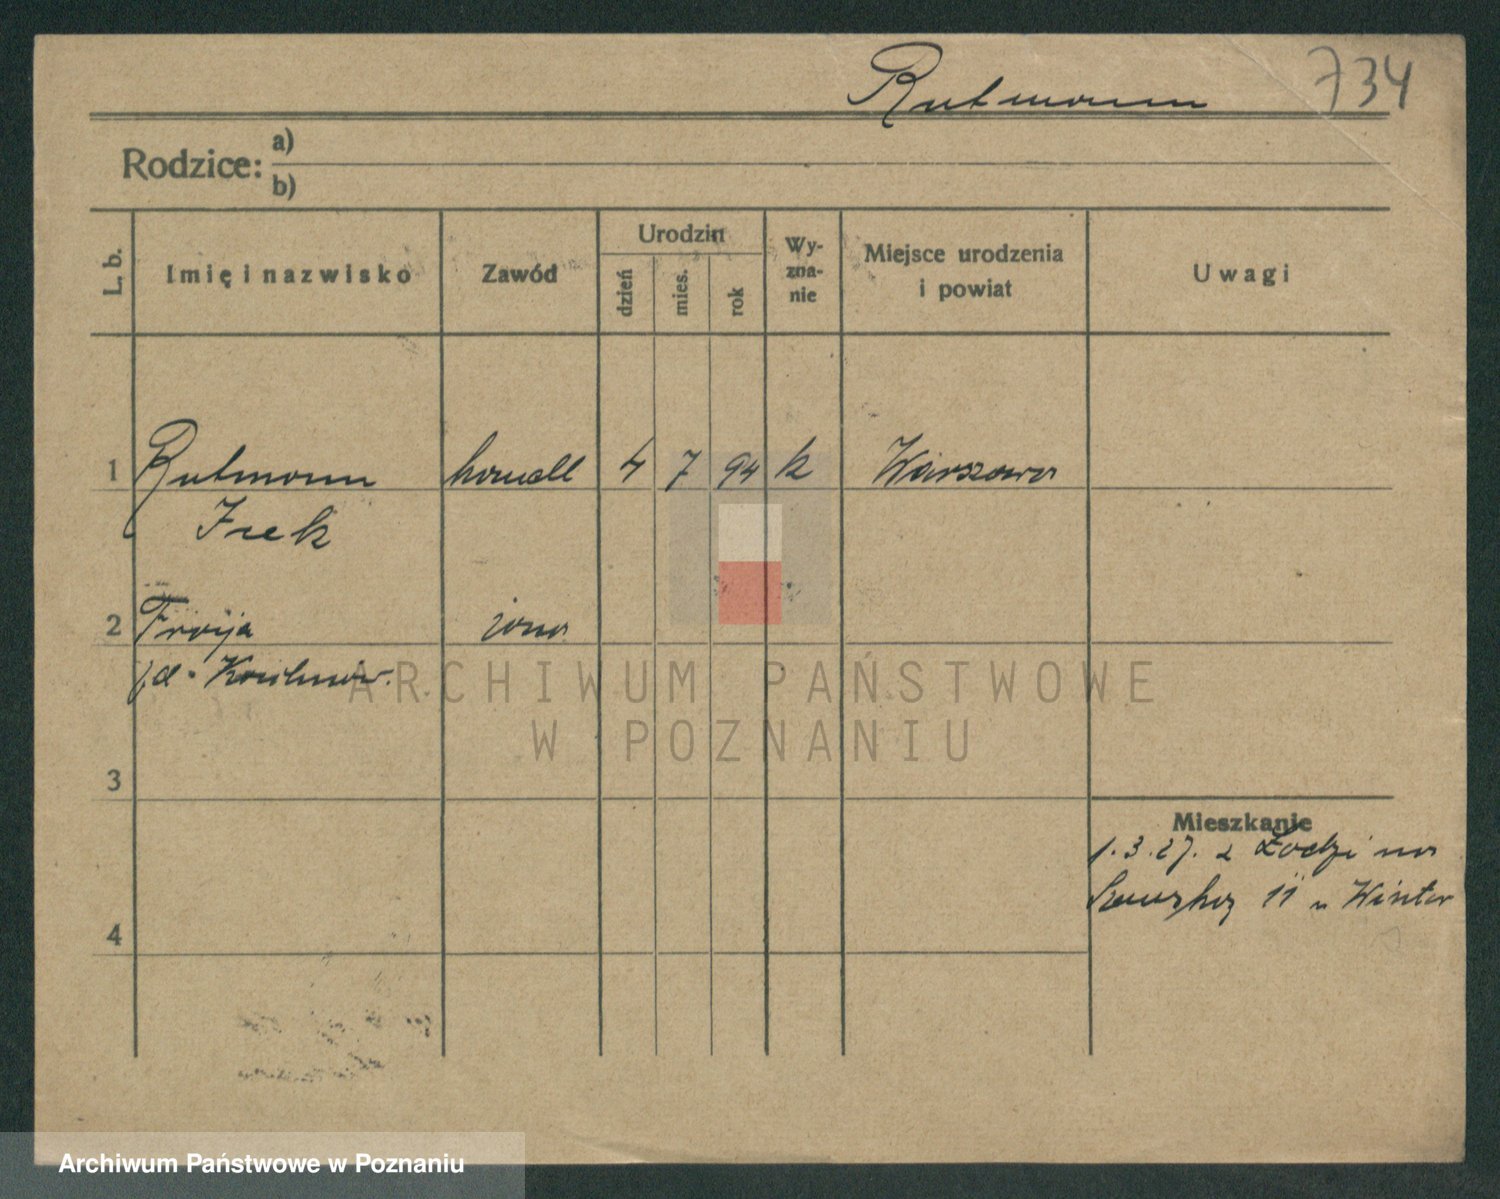 Rutmann 734
Rodzice: a)
b)
L. b. Imię i nazwisko Zawód Urodzin dzień mies. rok Wyznanie Miejsce urodzenia i powiat Uwagi
1 Rutmann handl 4 7 94 k Warszawa
Icek
2 Frajja żona
ARCHIWUM PAŃSTWOWE
W POZNANIU
3
Mieszkanie
1.3.27. z Łodzi na
11 u Winter
4
Archiwum Państwowe w Poznaniu